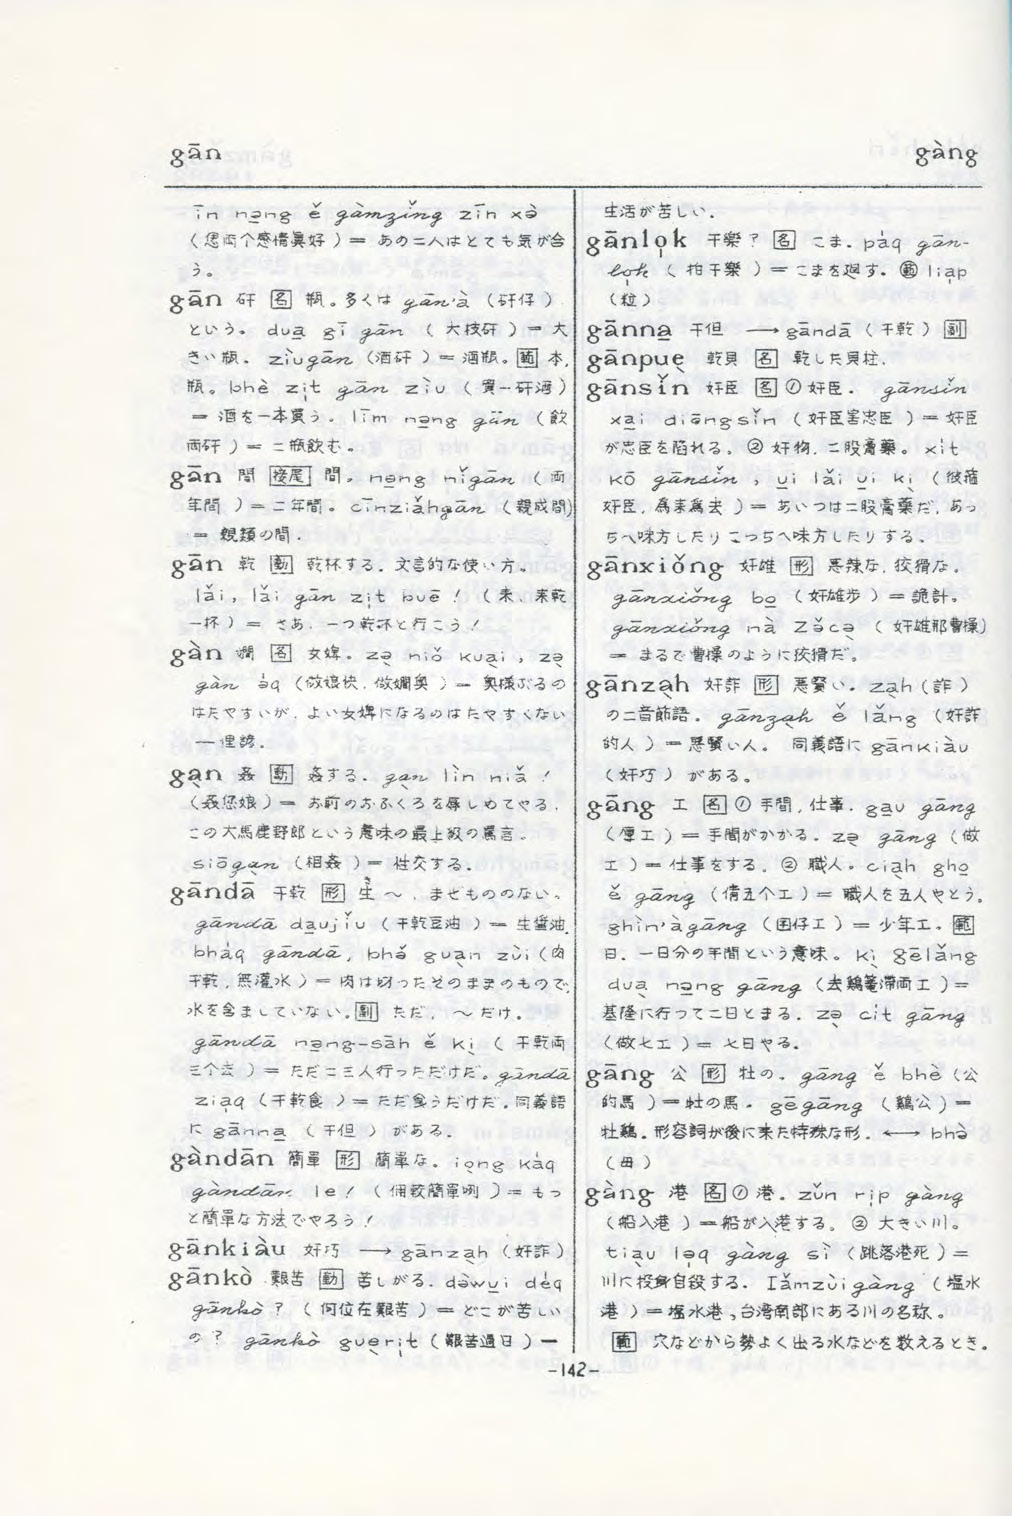 gān
gàng
īn na̱ng ě gàmzǐng zīn xə̀
(恁両个感情眞好) = あの二人はとても気が合
う。
gān 矸 名 瓶。多くは gān'à (矸仔)
という。 dua̱ gī gān (大枝矸) = 大
きい瓶. zìugān (酒矸) = 酒瓶。範 本,
瓶。 bhè zi̍t gān zìu (買一矸酒)
= 酒を一本買う. līm na̱ng gān (飲
両矸) = 二瓶飲む。
gān 間 接尾 間。 na̱ng nǐgān (両
年間) = 二年間。 cīnziǎhgān (親戚間)
= 親類の間.
gān 乾 動 乾杯する. 文言的な使い方。
lǎi, lǎi gān zi̍t buē ! (来、来乾
一杯) = さあ, 一つ乾杯と行こう!
gàn 嫺 名 女婢. zə̣ niǒ kuại, zə̣
gàn əq (做娘快, 做嫺奥) = 奥様ぶるの
はたやすいが, よい女婢になるのはたやすくない
—俚諺.
gạn 姦 動 姦する. gạn lìn niǎ !
(姦恁娘) = お前のおふくろを辱しめてやる.
この大馬鹿野郎という意味の最上級の罵言。
siōgạn (相姦) = 性交する.
gāndā 干乾 形 生〜, まぜもののない.
gāndā da̱ujǐu (干乾豆油) = 生醤油.
bhàq gāndā, bhə̌ guạn zùi (肉
干乾, 無灌水) = 肉は切ったそのままのもので,
水を含ましていない。副 ただ, 〜だけ.
gāndā na̱ng-sāh ě kị (干乾両
三个去) = ただ二三人行っただけだ。gāndā
ziaq (干乾食) = ただ食うだけだ. 同義語
に gānna̱ (干但) がある.
gàndān 簡單 形 簡單な. io̱ng kàq
gàndān le! (佣較簡單咧) = もっ
と簡單な方法でやろう!
gānkiàu 奸巧 → gānzạh (奸詐)
gānkò 艱苦 動 苦しがる. dəwu̱i dèq
gānkò? (何位在艱苦) = どこが苦しい
の? gānkò guẹri̍t (艱苦過日) =
生活が苦しい.
gānlo̍k 干樂? 名 こま. pàq gān-
lo̍k (拍干樂) = こまを廻す。範 lia̍p
(粒)
gānna̱ 干但 → gāndā (干乾) 副
gānpuẹ 乾貝 名 乾した貝柱.
gānsǐn 奸臣 名 ① 奸臣. gānsǐn
xa̱i diōngsǐn (奸臣害忠臣) = 奸臣
が忠臣を陥れる. ② 奸物, 二股膏藥。 xit
kō gānsǐn u̱i lǎi u̱i kị (彼箍
奸臣, 為来為去) = あいつは二股膏藥だ, あっ
ちへ味方したりこっちへ味方したりする.
gānxiǒng 奸雄 形 悪辣な, 狡猾な.
gānxiǒng bo̱ (奸雄步) = 詭計。
gānxiǒng nà Zə̌cə (奸雄那曹操)
= まるで曹操のように狡猾だ。
gānzạh 奸詐 形 悪賢い. zạh (詐)
の二音節語. gānzạh ě lǎng (奸詐
的人) = 悪賢い人。 同義語に gānkiàu
(奸巧) がある。
gāng 工 名 ① 手間, 仕事. ga̱u gāng
(厚工) = 手間がかかる. zə̣ gāng (做
工) = 仕事をする. ② 職人. ciạh gho̱
ě gāng (倩五个工) = 職人を五人やとう.
ghìn'àgāng (囡仔工) = 少年工. 範
日. 一日分の手間という意味。 kị Gēlǎng
duạ na̱ng gāng (去鷄篭滞両工) =
基隆に行って二日とまる. zə̣ cit gāng
(做七工) = 七日やる.
gāng 公 形 牡の. gāng ě bhè (公
的馬) = 牡の馬. gēgāng (鷄公) =
牡鷄. 形容詞が後に来た特殊な形. ⟷ bhə̀
(母)
gàng 港 名 ① 港. zǔn ri̍p gàng
(船入港) = 船が入港する. ② 大きい川.
tiạu lə̍q gàng sì (跳落港死) =
川に投身自殺する. Iǎmzùigàng (塩水
港) = 塩水港, 台湾南部にある川の名称.
範 穴などから勢よく出る水などを数えるとき.
-142-